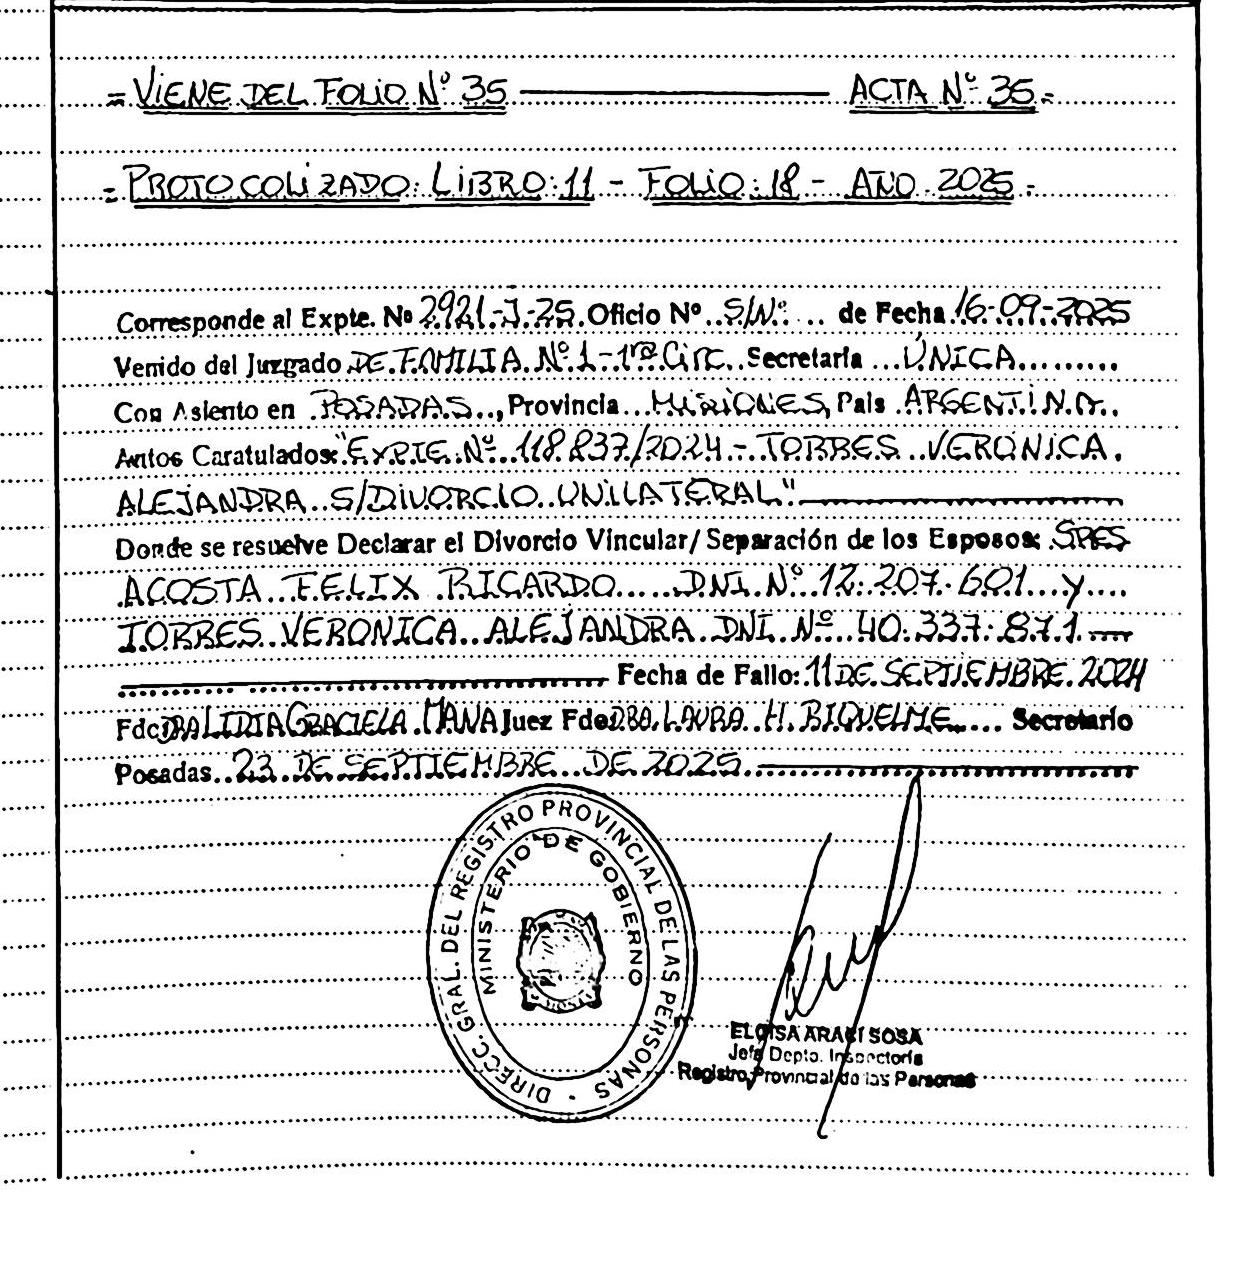 = VIENE DEL FOLIO Nº 35 ——— ACTA Nº 35.=
= PROTOCOLIZADO: LIBRO: 11 - FOLIO: 18 - AÑO 2025.=
Corresponde al Expte. Nº 2921-J-25. Oficio Nº S/Nº de Fecha 16-09-2025
Venido del Juzgado DE FAMILIA Nº 1 - 1ra Circ. Secretaría ÚNICA
Con Asiento en POSADAS, Provincia MISIONES, País ARGENTINA.
Autos Caratulados: "EXPTE. Nº 118.837/2024 - TORRES VERONICA
ALEJANDRA S/DIVORCIO UNILATERAL"
Donde se resuelve Declarar el Divorcio Vincular/ Separación de los Esposos: SRES
ACOSTA FELIX RICARDO DNI Nº 12.207.601 y
TORRES VERONICA ALEJANDRA DNI Nº 40.337.871
Fecha de Fallo: 11 DE SEPTIEMBRE 2024
Fdo: DRA LIDIA GRACIELA MANA Juez Fdo: DRA. LAURA H. RIQUELME Secretario
Posadas 23 DE SEPTIEMBRE DE 2025
DIRECC. GRAL. DEL REGISTRO PROVINCIAL DE LAS PERSONAS
MINISTERIO DE GOBIERNO
ELOISA ARACI SOSA
Jefa Depto. Inspectoría
Registro Provincial de las Personas